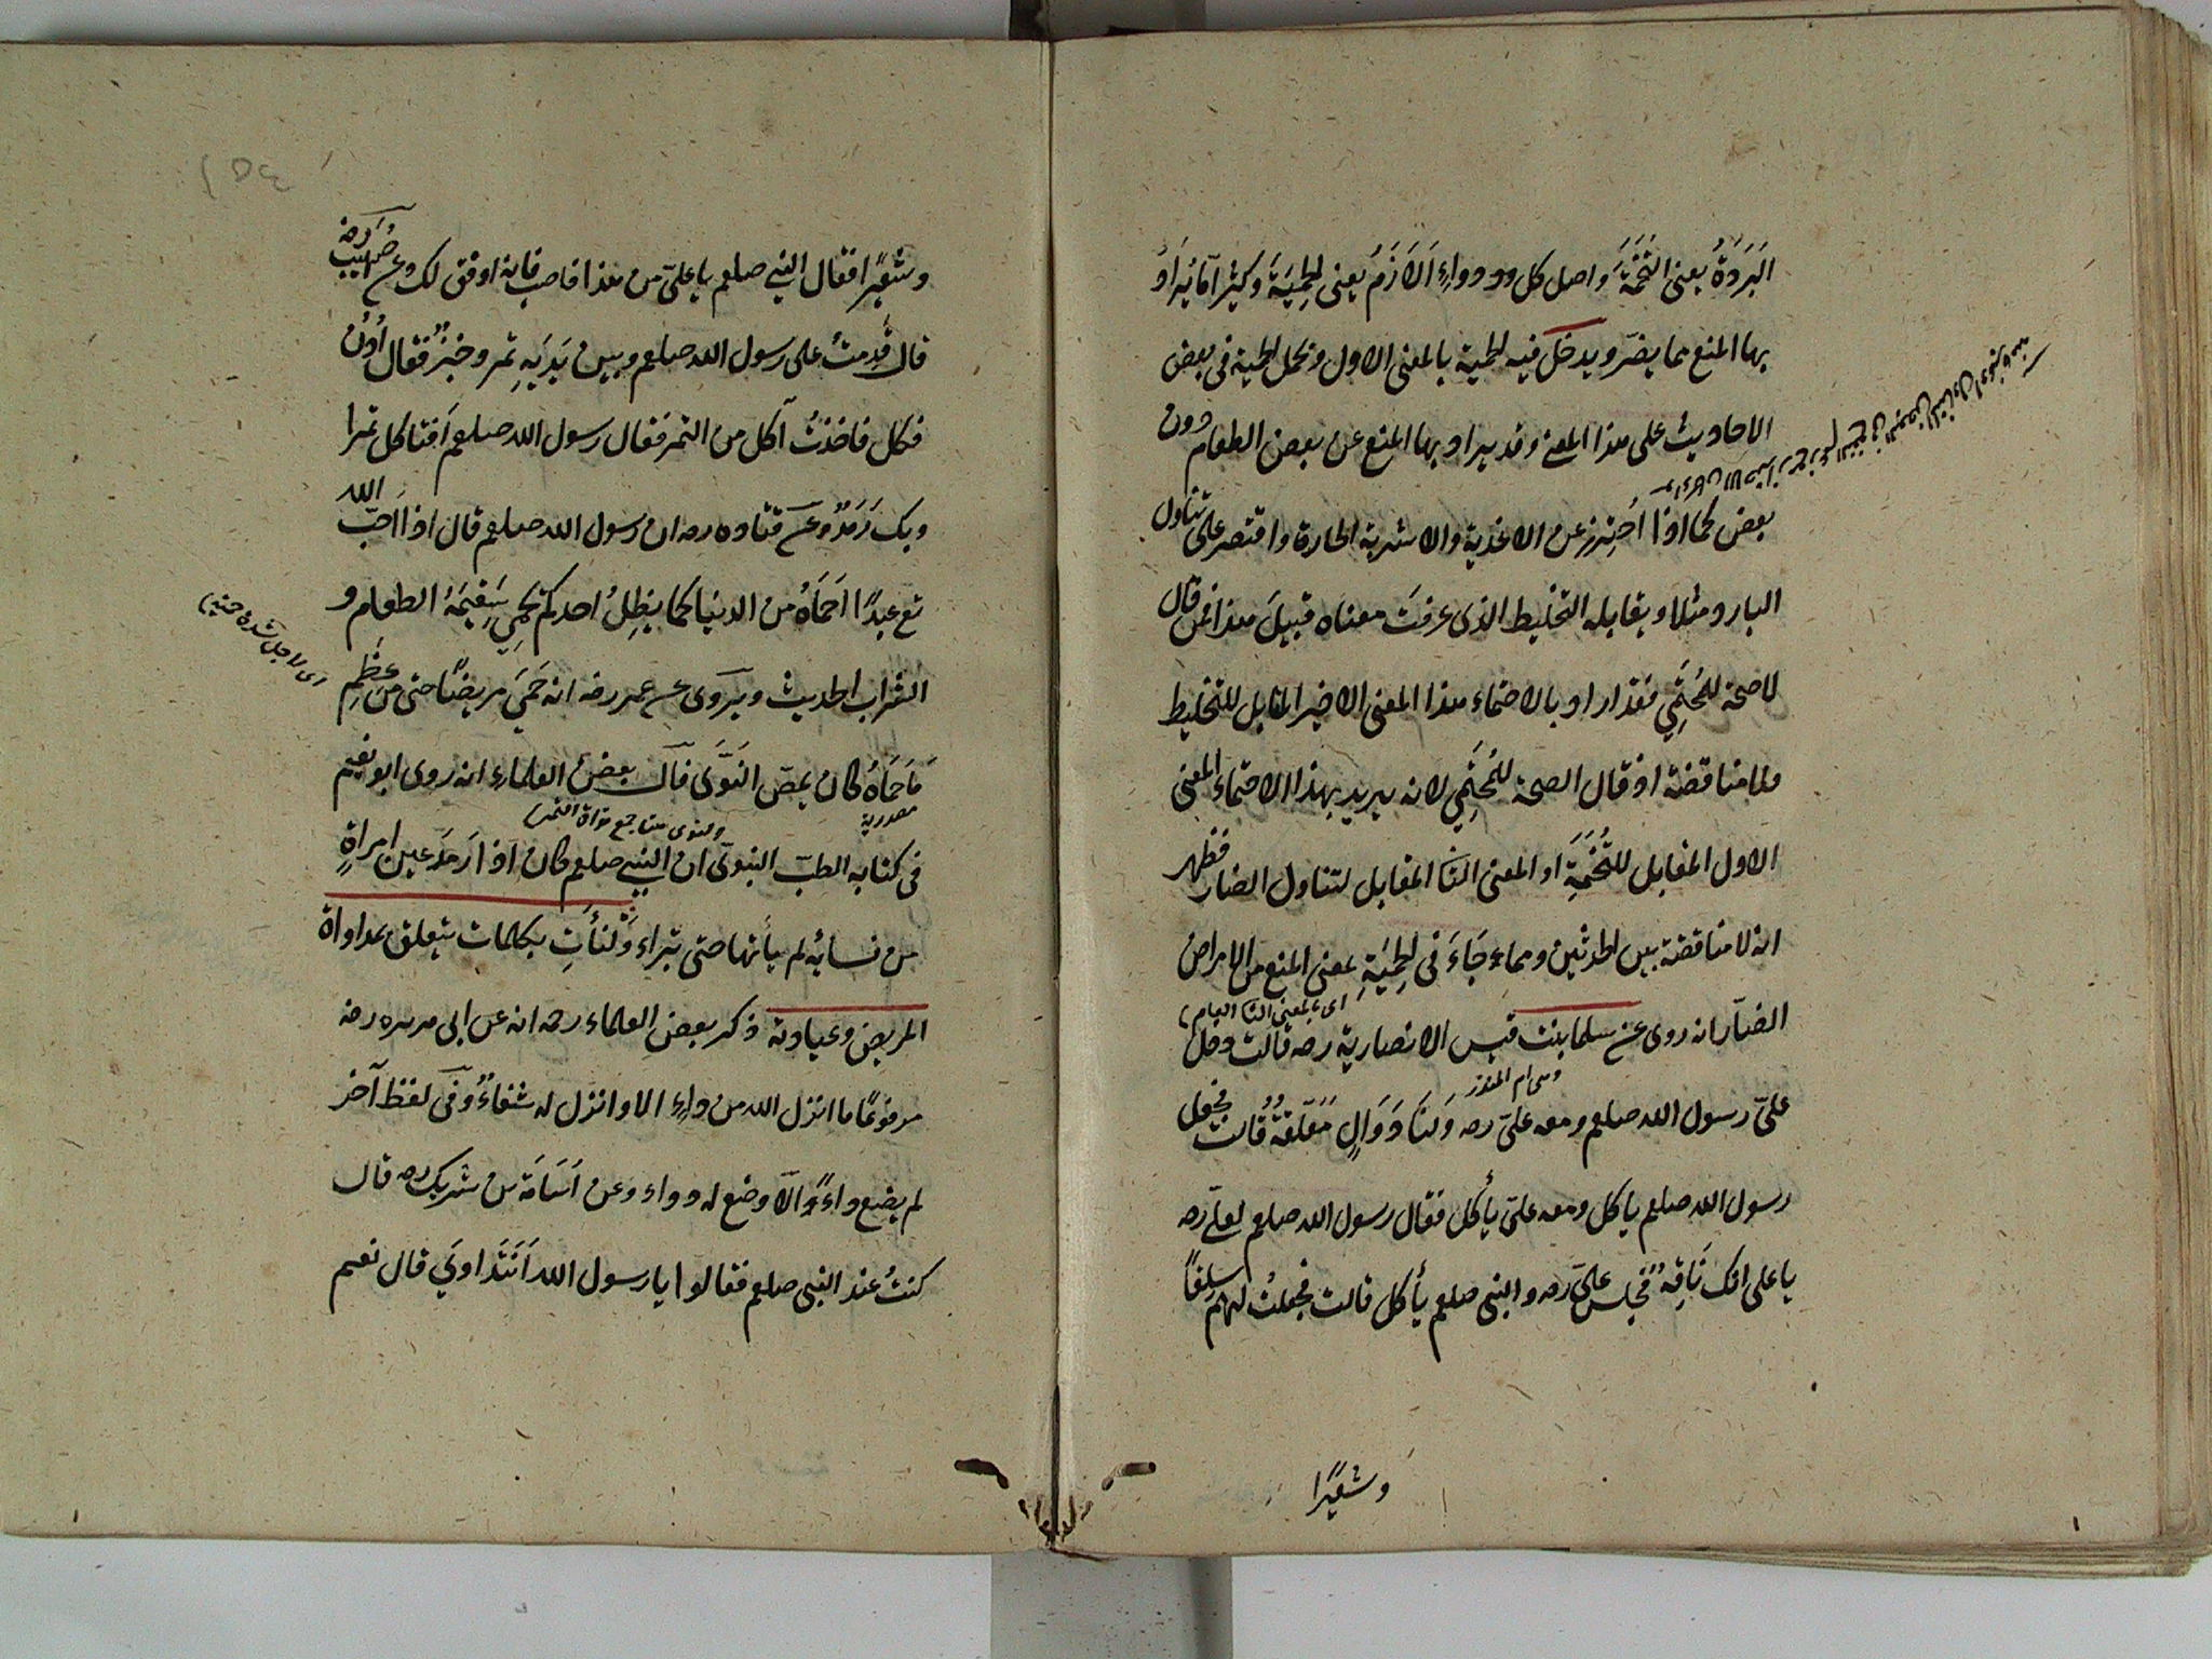 البَرَدَةُ يعنى التُّخَمَةَ واصل كل دواءٍ الاَزمُ يعنى الحِميَةَ وكثيرا ما يُرادُ
بها المنع مما يضرّ ويدخل فيه الحمية بالمعنى الاول وتحمل الحمية فى بعض
الاحاديث على هذا المعنى وقد يراد بها المنع عن بعض الطعام دون
بعض كما اذا اُحتِرزَ عن الاغذية والاشربة الحارة واقتصر على تناول
البارد مثلا ويقابله التخليط الذى عرفتَ معناه قبيلَ هذا فمن قال
لا صحة للمُحتَمِى فقد اراد بالاحتماء هذا المعنى الاخير المقابل للتخليط
ولا مناقضة اذ قال الصحة للمُحتَمِى لانه يريد بهذا الاحتماء المعنى
الاول المقابل للتُّخَمَةِ او المعنى الثا المقابل لتناول الضار فظهر
انه لا مناقضة بين الحديثين ومما جَاءَ فى الحِميَةِ بمعنى المنع من الامراض
اى بالمعنى الثا العام
الضارّ انه روى عن سلما بنت قيس الانصارية رضه قالت دخل
وهى ام المنذر
علىّ رسول الله صلعم ومعه علىّ رضه ولنَا دَوَالٍ مُعَلّقةٌ قالت فجعل
رسول الله صلعم ياكل ومعه علىّ يأكل فقال رسول الله صلعم لعلىّ رضه
يا على انك نَاقِهٌ فجلس علىّ رضه والنبى صلعم يأكل قالت فجعلتُ لهم سلقًا
وشعيرًا
وشعيرًا فقال النبى صلعم يا علىّ من هذا فاصب فانه اوفق لك وعن صُهَيب رضه
قال قدِمتُ على رسول الله صلعم وبين يَدَيهِ تمر وخبزٌ فقال اُدنُ
فكل فاخذتُ آكل من التمر فقال رسول الله صلعم اَفتاكل تمرا
وبك رَمَدٌ وعن قتاده رضه ان رسول الله صلعم قال اذا احبّ الله
تع عبدًا احمَاهُ من الدنيا كما يظِلُ احدكم يحمِى سَقِيمَهُ الطعام و
الشراب الحديث ويروى عن عمر رضه انه حَمَىَ مريضًا حتى من عِظَمِ
اى لاجل شدة حميته
مَا حَمَاهُ كان يمصّ النَوَى قال بعض العلماء انه روى ابو نعيم
مصدرية
والنوى هنا جمع نواة التمر
فى كتابه الطبّ النبوىّ ان النبى صلعم كان اذا رَمَدَ عين امراةٍ
من نسائه لم يأتها حتى تبراء وَلنَأتِ بكلمات يتعلق بمداواة
المريض وعيادته ذكر بعض العلماء رحه انه عن ابى هريره رضه
مرفوعًا ما انزل الله من داءٍ الا وانزل له شفاءٌ وفى لفظ آخر
لم يضع داءً الّا وضع له دواء وعن اُسَامَة بن شريك رضه قال
كنتُ عند النبى صلعم فقالوا يا رسول الله اَنَتَداوَى قال نعم